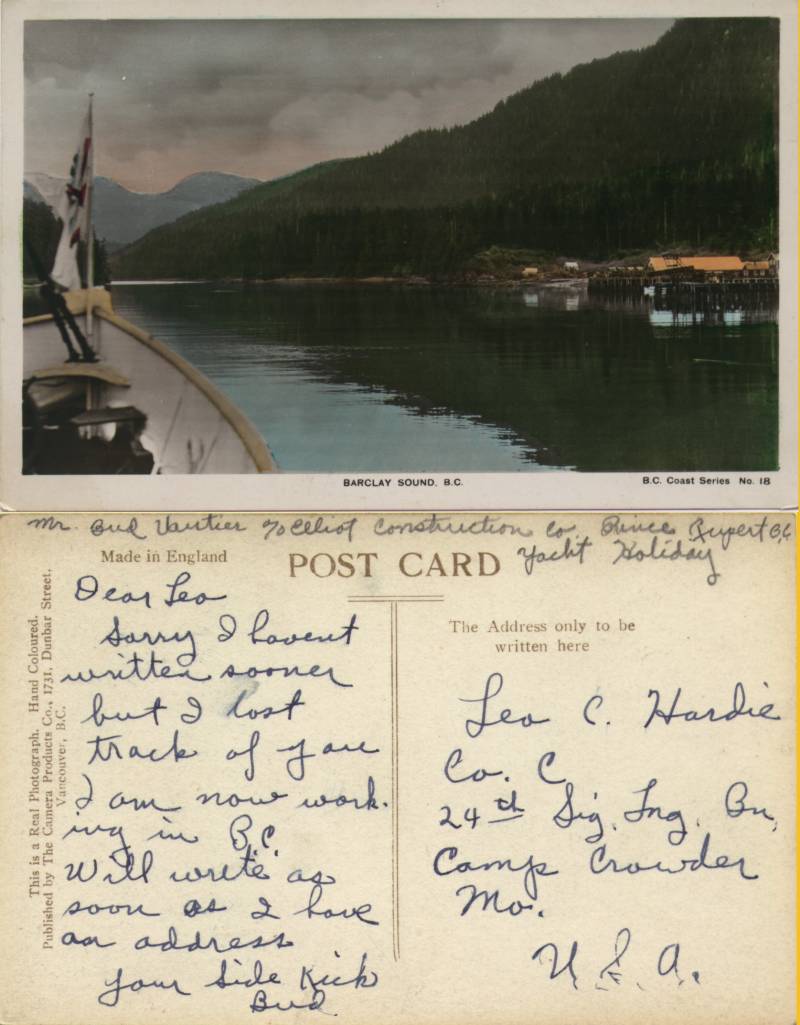 BARCLAY SOUND, B.C.
B.C. Coast Series No. 18
Mr. Bud Vautier c/o Elliot Construction Co Prince Rupert B.C
Yacht Holiday
Made in England
POST CARD
This is a Real Photograph. Hand Coloured.
Published by The Camera Products Co., 1731, Dunbar Street,
Vancouver, B.C.
Dear Leo
Sorry I havent
written sooner
but I lost
track of you
I am now work-
ing in B.C.
Will write as
soon as I have
an address
your Side Kick
Bud
The Address only to be
written here
Leo C. Hardie
Co. C
24th Sig. Trng. Bn.
Camp Crowder
Mo.
U.S.A.